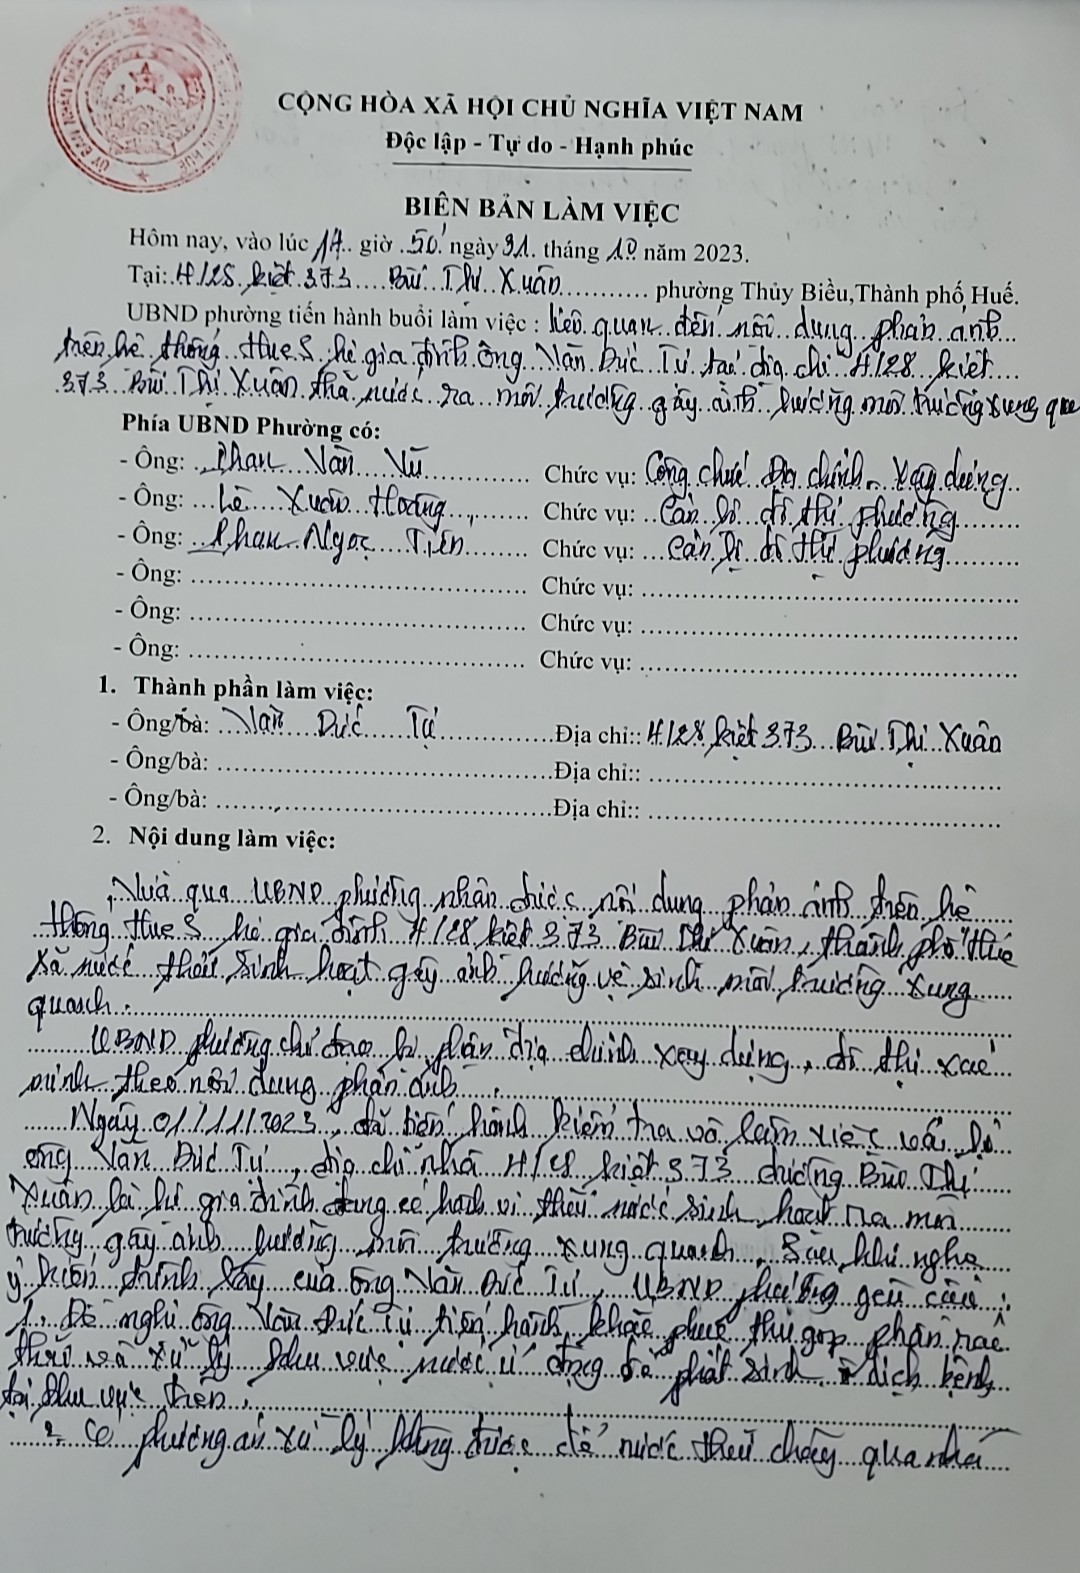 CỘNG HÒA XÃ HỘI CHỦ NGHĨA VIỆT NAM
Độc lập - Tự do - Hạnh phúc
BIÊN BẢN LÀM VIỆC
Hôm nay, vào lúc 14 giờ 50 ngày 31 tháng 10 năm 2023.
Tại: 4/128 kiệt 373 Bùi Thị Xuân phường Thủy Biều,Thành phố Huế.
UBND phường tiến hành buổi làm việc : liên quan đến nội dung phản ánh
trên hệ thống HueS hộ gia đình ông Văn Đức Tứ tại địa chỉ 4/128 kiệt
373 Bùi Thị Xuân thả nước ra môi trường gây ảnh hưởng môi trường xung qua
Phía UBND Phường có:
- Ông: Phan Văn Vũ Chức vụ: Công chức Địa chính - Xây dựng
- Ông: Lê Xuân Hoàng Chức vụ: Cán bộ đô thị phường
- Ông: Phan Ngọc Tiến Chức vụ: Cán bộ đô thị phường
- Ông: Chức vụ:
- Ông: Chức vụ:
- Ông: Chức vụ:
1. Thành phần làm việc:
- Ông/bà: Văn Đức Tứ Địa chỉ:: 4/128 kiệt 373 Bùi Thị Xuân
- Ông/bà: Địa chỉ::
- Ông/bà: Địa chỉ::
2. Nội dung làm việc:
Vừa qua UBND phường nhận được nội dung phản ánh trên hệ
thống HueS hộ gia đình 4/128 kiệt 373 Bùi Thị Xuân, thành phố Huế
xả nước thải sinh hoạt gây ảnh hưởng vệ sinh môi trường xung
quanh.
UBND phường chỉ đạo bộ phận địa chính xây dựng, đô thị xác
minh theo nội dung phản ánh.
Ngày 01/11/2023, đã tiến hành kiểm tra và làm việc với hộ
ông Văn Đức Tứ, địa chỉ nhà 4/128 kiệt 373 đường Bùi Thị
Xuân là hộ gia đình đang có hành vi thải nước sinh hoạt ra môi
trường, gây ảnh hưởng môi trường xung quanh. Sau khi nghe
ý kiến trình bày của ông Văn Đức Tứ, UBND phường yêu cầu:
1. Đề nghị ông Văn Đức Tứ tiến hành khắc phục thu gom phân rác
thải và xử lý khu vực nước ứ đọng để phát sinh dịch bệnh
tại khu vực trên.
2. Có phương án xử lý không được để nước thải chảy qua nhà